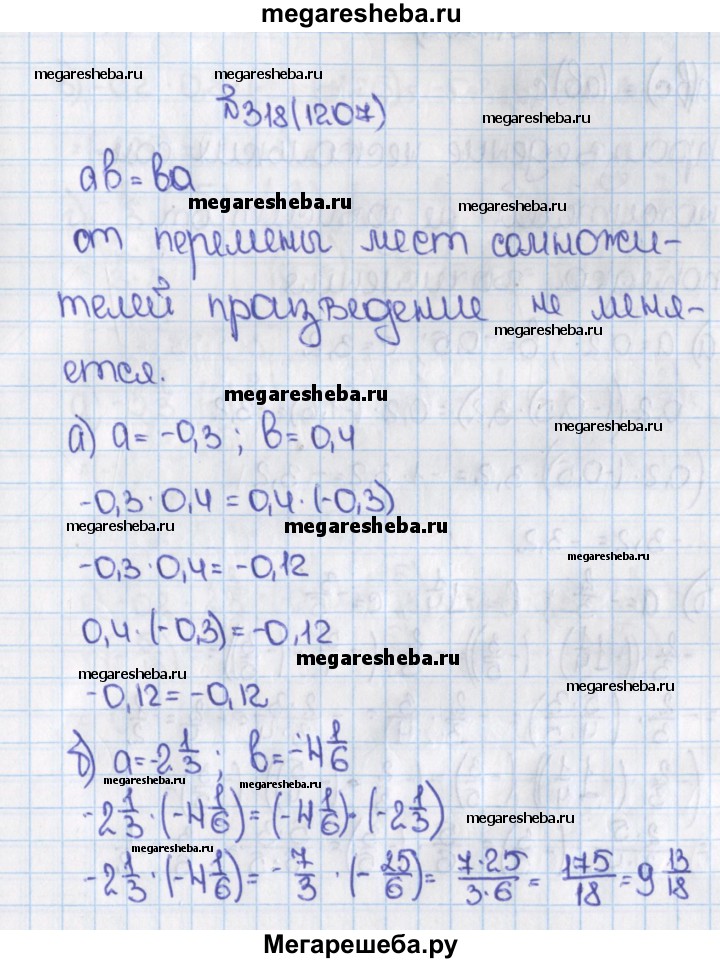 megaresheba.ru
megaresheba.ru megaresheba.ru
№318(1207)
megaresheba.ru
ab = ba
megaresheba.ru megaresheba.ru
от перемены мест самножи-
телей произведение не меня-
megaresheba.ru
ется.
megaresheba.ru
а) a = -0,3 ; b = 0,4
megaresheba.ru
-0,3 · 0,4 = 0,4 · (-0,3)
megaresheba.ru megaresheba.ru
megaresheba.ru
-0,3 · 0,4 = -0,12
0,4 · (-0,3) = -0,12
megaresheba.ru
megaresheba.ru megaresheba.ru
-0,12 = -0,12
б) a = -2 1/3 ; b = -4 1/6
megaresheba.ru megaresheba.ru
-2 1/3 · (-4 1/6) = (-4 1/6) · (-2 1/3)
megaresheba.ru
megaresheba.ru
-2 1/3 · (-4 1/6) = -7/3 · (-25/6) = 7·25/3·6 = 175/18 = 9 13/18
Мегарешеба.ру